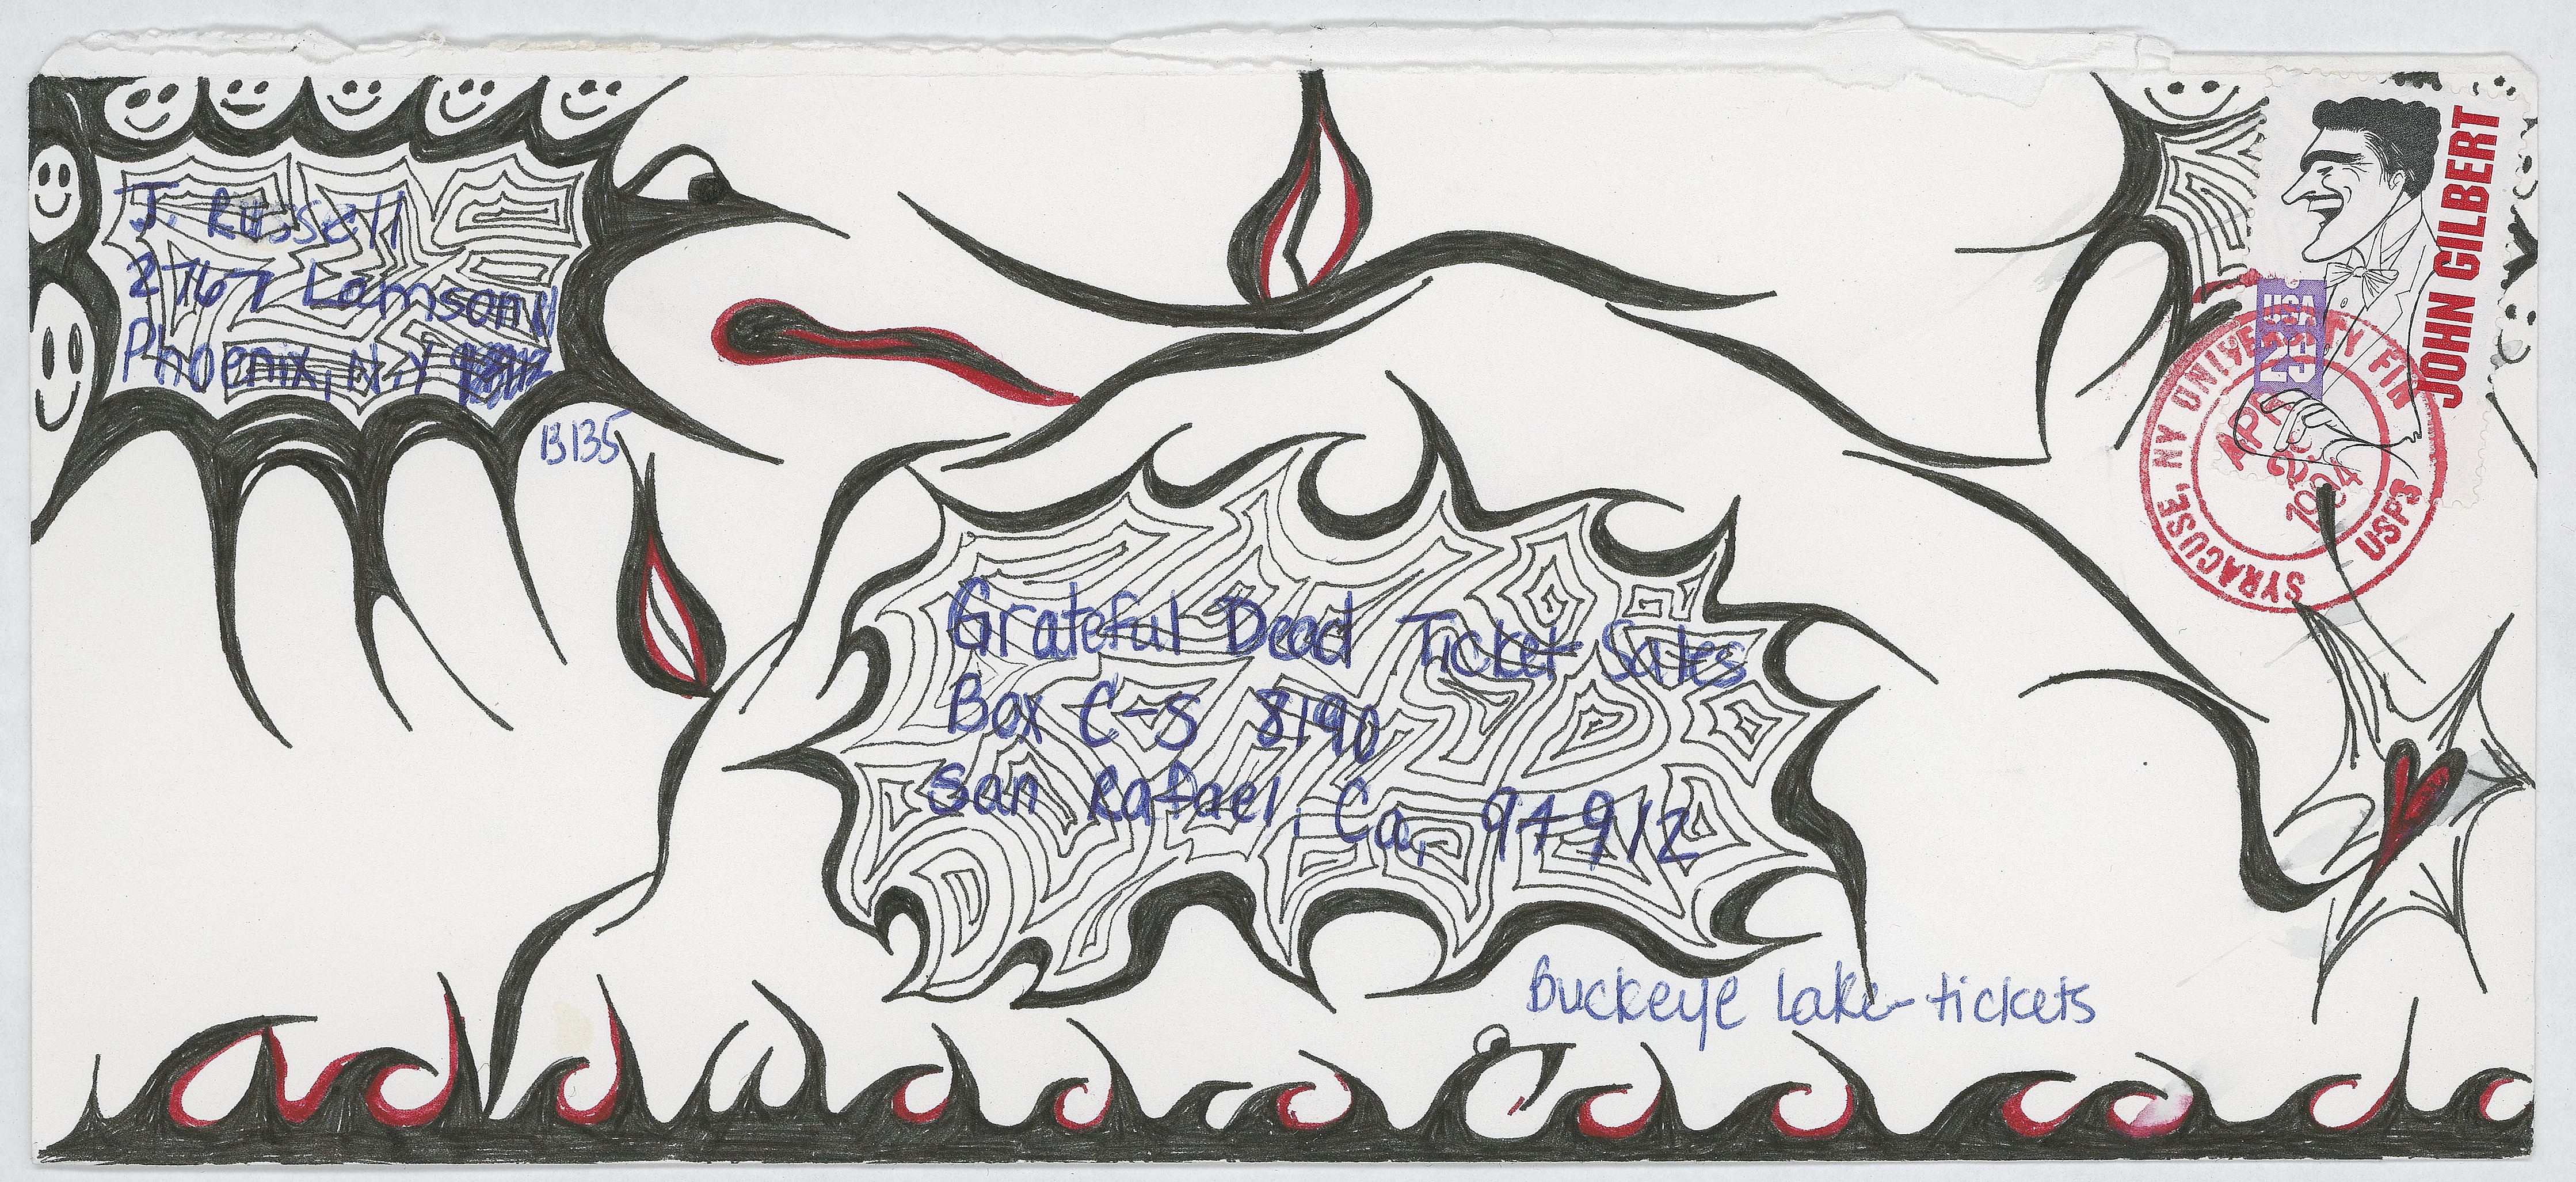 J. Russell
2767 Lamson
Phoenix, N.Y
B135
JOHN GILBERT
USA
SYRACUSE, NY UNIVERSITY
APR
1994
USPS
Grateful Dead Ticket Sales
Box C-S 8190
San Rafael, Ca, 94912
Buckeye Lake-tickets